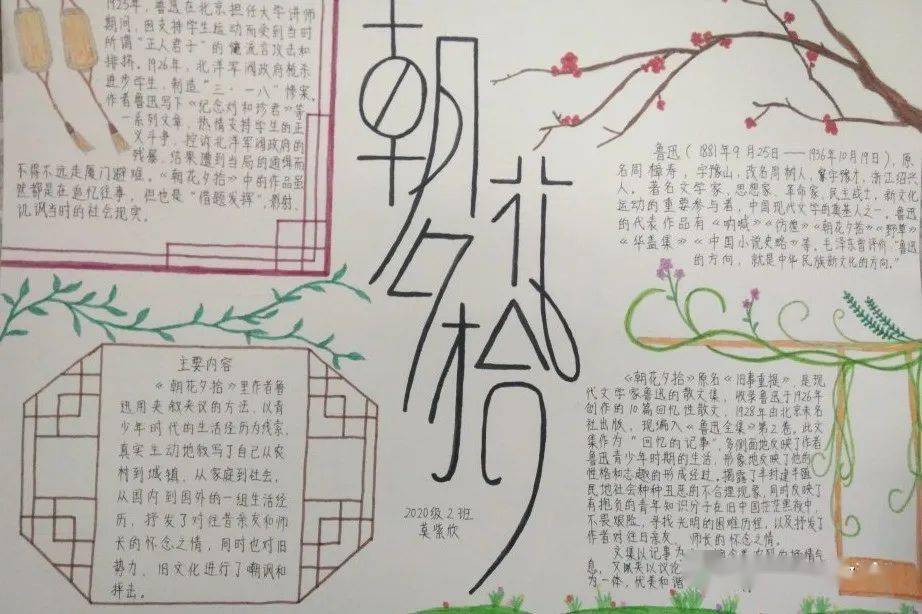 1925年,鲁迅在北京担任大学讲师
期间,因支持学生运动而受到当时
所谓“正人君子”的流言攻击和
排挤。1926年,北洋军阀政府枪杀
进步学生,制造“三·一八”惨案。
作者鲁迅写下《纪念刘和珍君》等
一系列文章,热情支持学生的正
义斗争,控诉北洋军阀政府的
残暴,结果遭到当局的通缉而
不得不远走厦门避难。《朝花夕拾》中的作品虽
然都是在追忆往事,但也是“借题发挥”,影射、
讥讽当时的社会现实。
朝花夕拾
鲁迅(1881年9月25日——1936年10月19日),原
名周樟寿,字豫山,改名周树人,字豫才,浙江绍兴
人。著名文学家、思想家、革命家、民主战士,新文化
运动的重要参与者,中国现代文学的奠基人之一。鲁迅
的代表作品有《呐喊》《彷徨》《朝花夕拾》《野草》
《华盖集》《中国小说史略》等。毛泽东曾评价:“鲁迅
的方向,就是中华民族新文化的方向。”
主要内容
《朝花夕拾》里作者鲁
迅用夹叙夹议的方法,以青
少年时代的生活经历为线索,
真实生动地叙写了自己从农
村到城镇,从家庭到社会,
从国内到国外的一组生活经
历,抒发了对往昔亲友和师
长的怀念之情,同时也对旧
势力、旧文化进行了嘲讽和
抨击。
2020级.2班
莫紫欣
《朝花夕拾》原名《旧事重提》,是现
代文学家鲁迅的散文集,收录鲁迅于1926年
创作的10篇回忆性散文,1928年由北京未名
社出版,现编入《鲁迅全集》第2卷。此文
集作为“回忆的记事”,多侧面地反映了作者
鲁迅青少年时期的生活,形象地反映了他的
性格和志趣的形成经过,揭露了半封建半殖
民地社会种种丑恶的不合理现象,同时反映了
有抱负的青年知识分子在旧中国茫茫黑夜中,
不畏艰险,寻找光明的困难历程,以及抒发了
作者对往日亲友、师长的怀念之情。
文集以记事为
息,又夹以议论
为一体,优美和谐